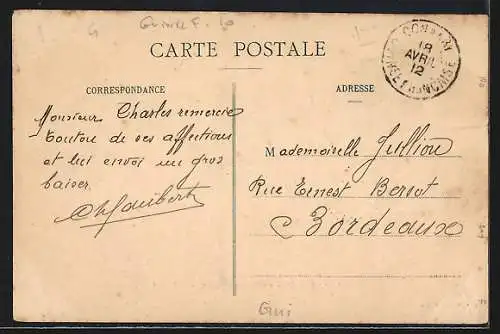 Guinée F. 10
CARTE POSTALE
CORRESPONDANCE
ADRESSE
CONAKRY
18
AVRIL
12
GUINÉE FRANÇAISE
Monsieur Charles remercie
toutou de ses affections
et lui envoi un gros
baiser
Ch Jaubert
Mademoiselle Jullion
Rue Ernest Bersot
Bordeaux
Gui